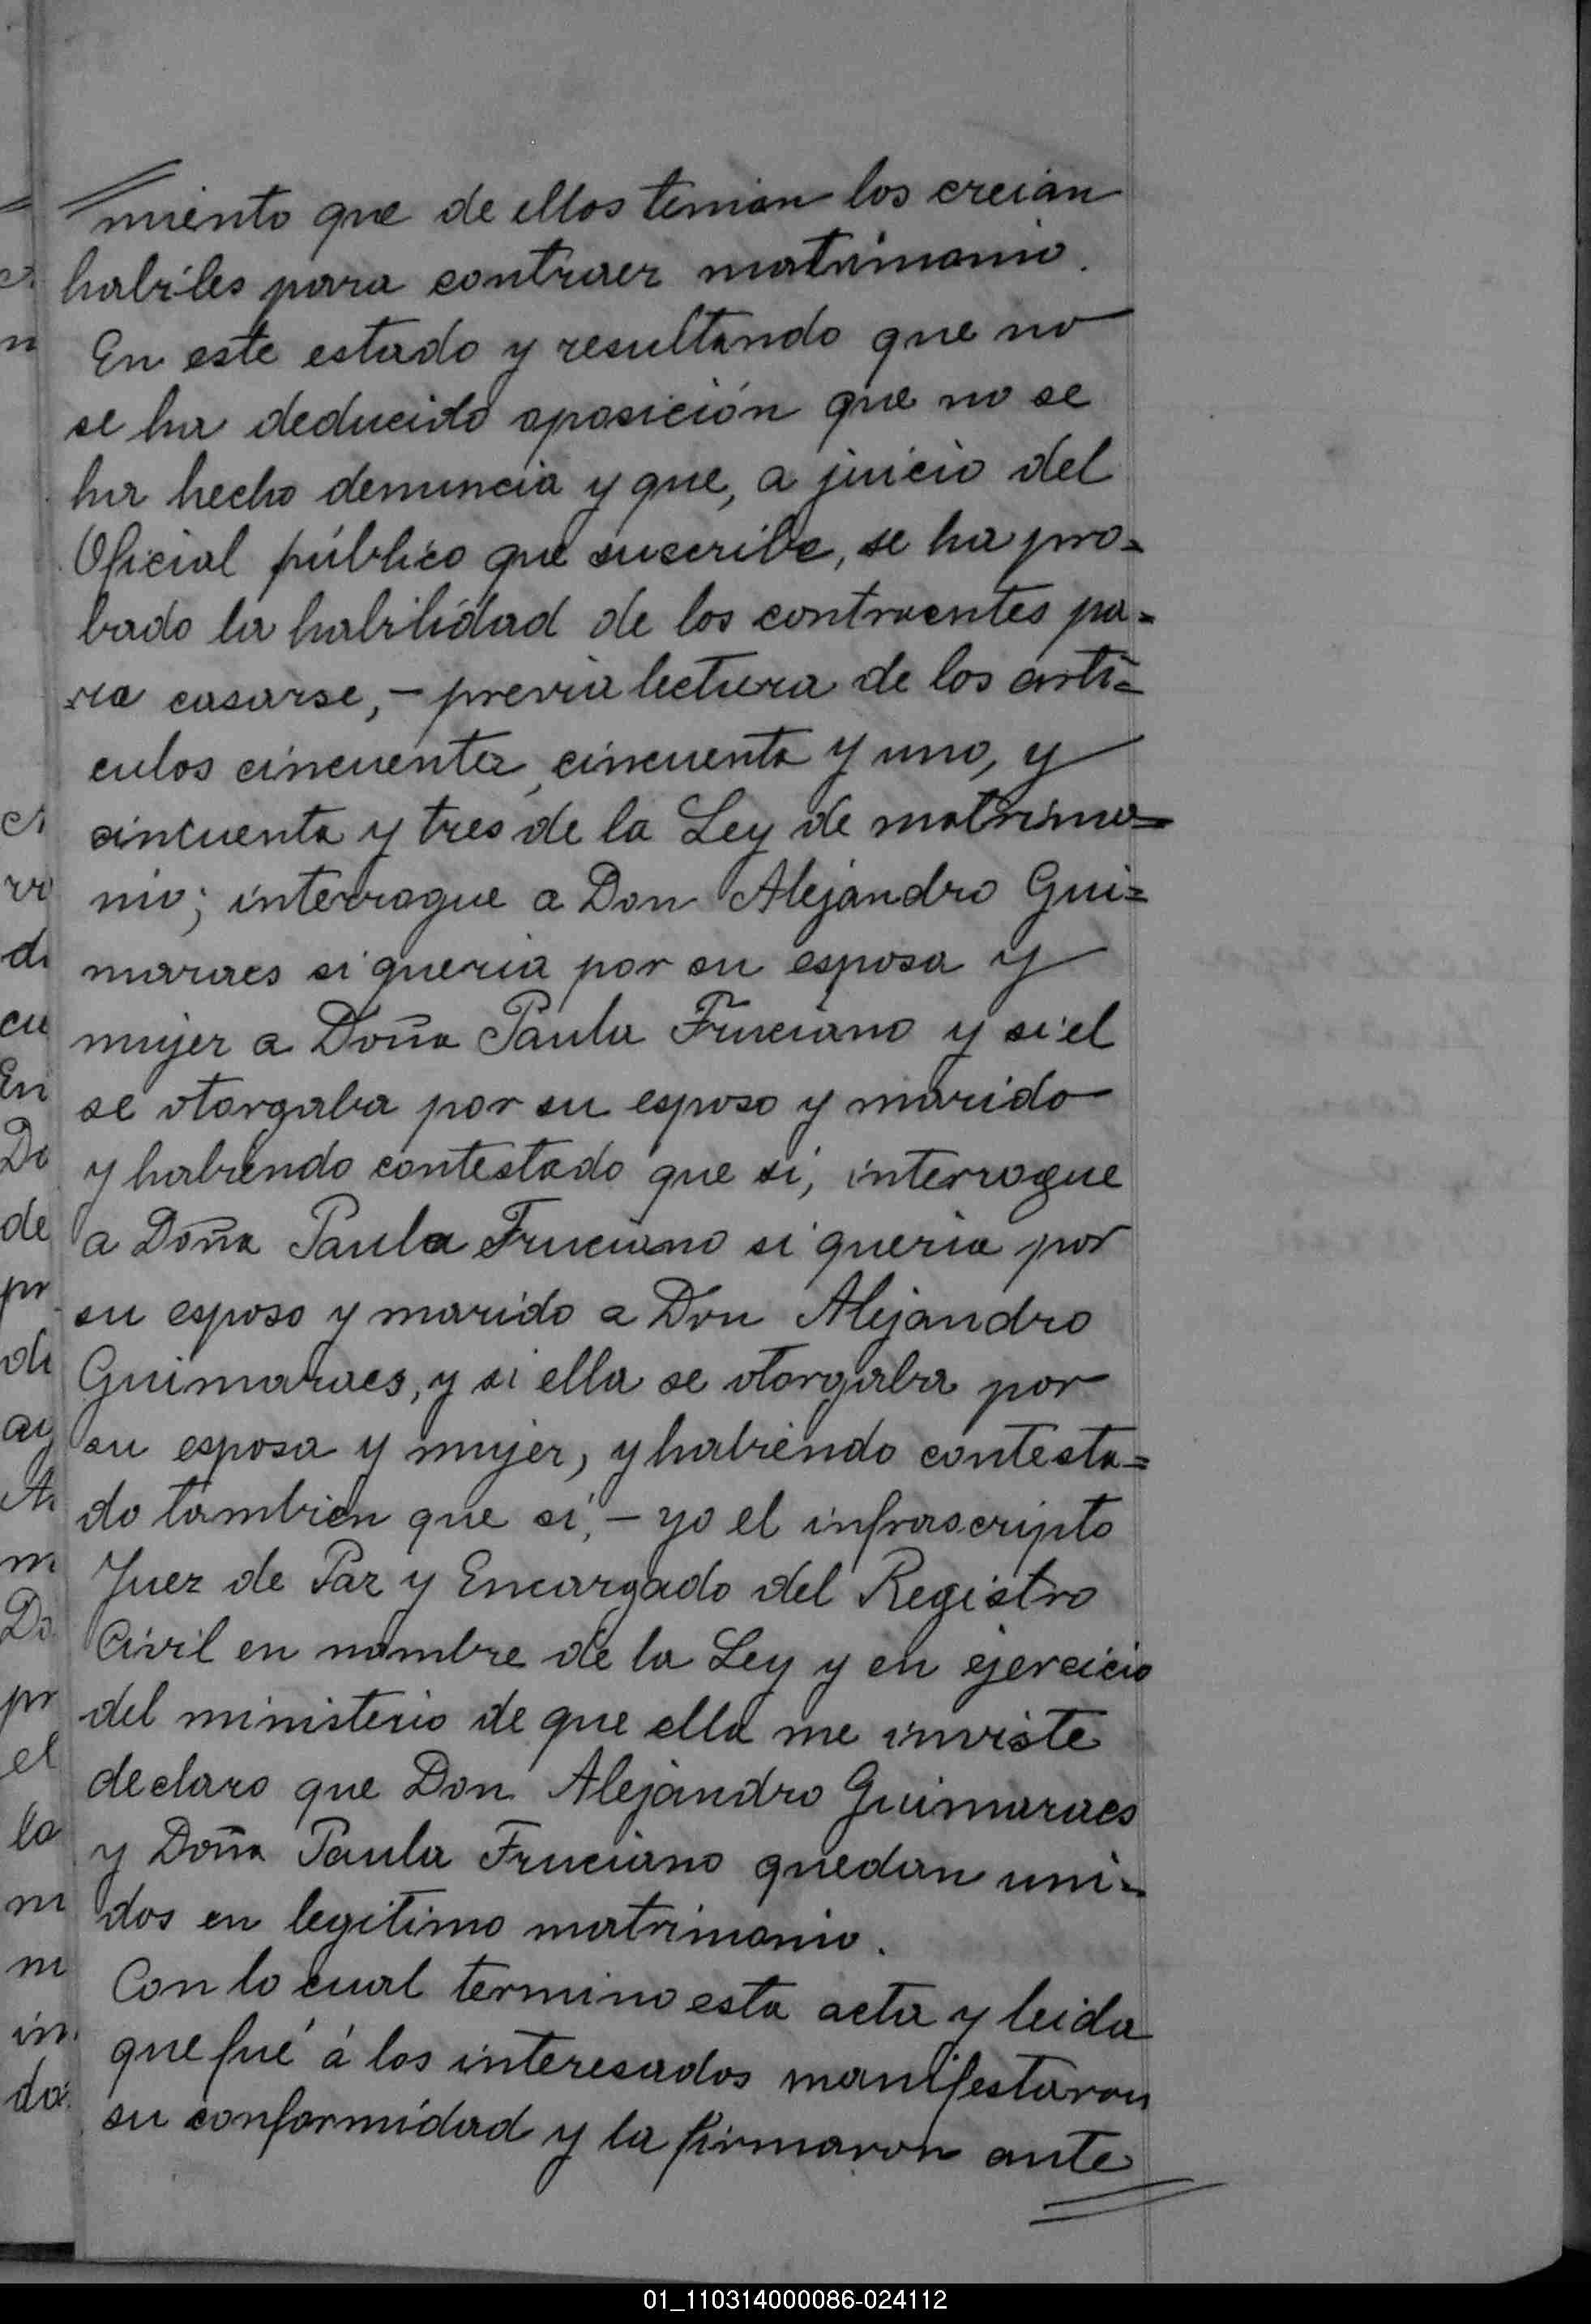 miento que de ellos tenian los creian
habiles para contraer matrimonio.
En este estado y resultando que no
se ha deducido oposición que no se
ha hecho denuncia y que, a juicio del
Oficial público que suscribe, se ha pro=
bado la habilidad de los contraentes pa=
ra casarse, - previa lectura de los arti=
culos cincuenta, cincuenta y uno, y
cincuenta y tres de la Ley de matrimo=
nio; interrogue a Don Alejandro Gui=
maraes si queria por su esposa y
mujer a Doña Paula Fruciano y si el
se otorgaba por su esposo y marido
y habiendo contestado que si, interrogue
a Doña Paula Fruciano si queria por
su esposo y marido a Don Alejandro
Guimaraes, y si ella se otorgaba por
su esposa y mujer, y habiendo contesta=
do tambien que si, - yo el infrascripto
Juez de Paz y Encargado del Registro
Civil en nombre de la Ley y en ejercicio
del ministerio de que ella me inviste
declaro que Don Alejandro Guimaraes
y Doña Paula Fruciano quedan uni=
dos en legitimo matrimonio.
Con lo cual termino esta acta y leida
que fué á los interesados manifestaron
su conformidad y la firmaron ante
01_110314000086-024112